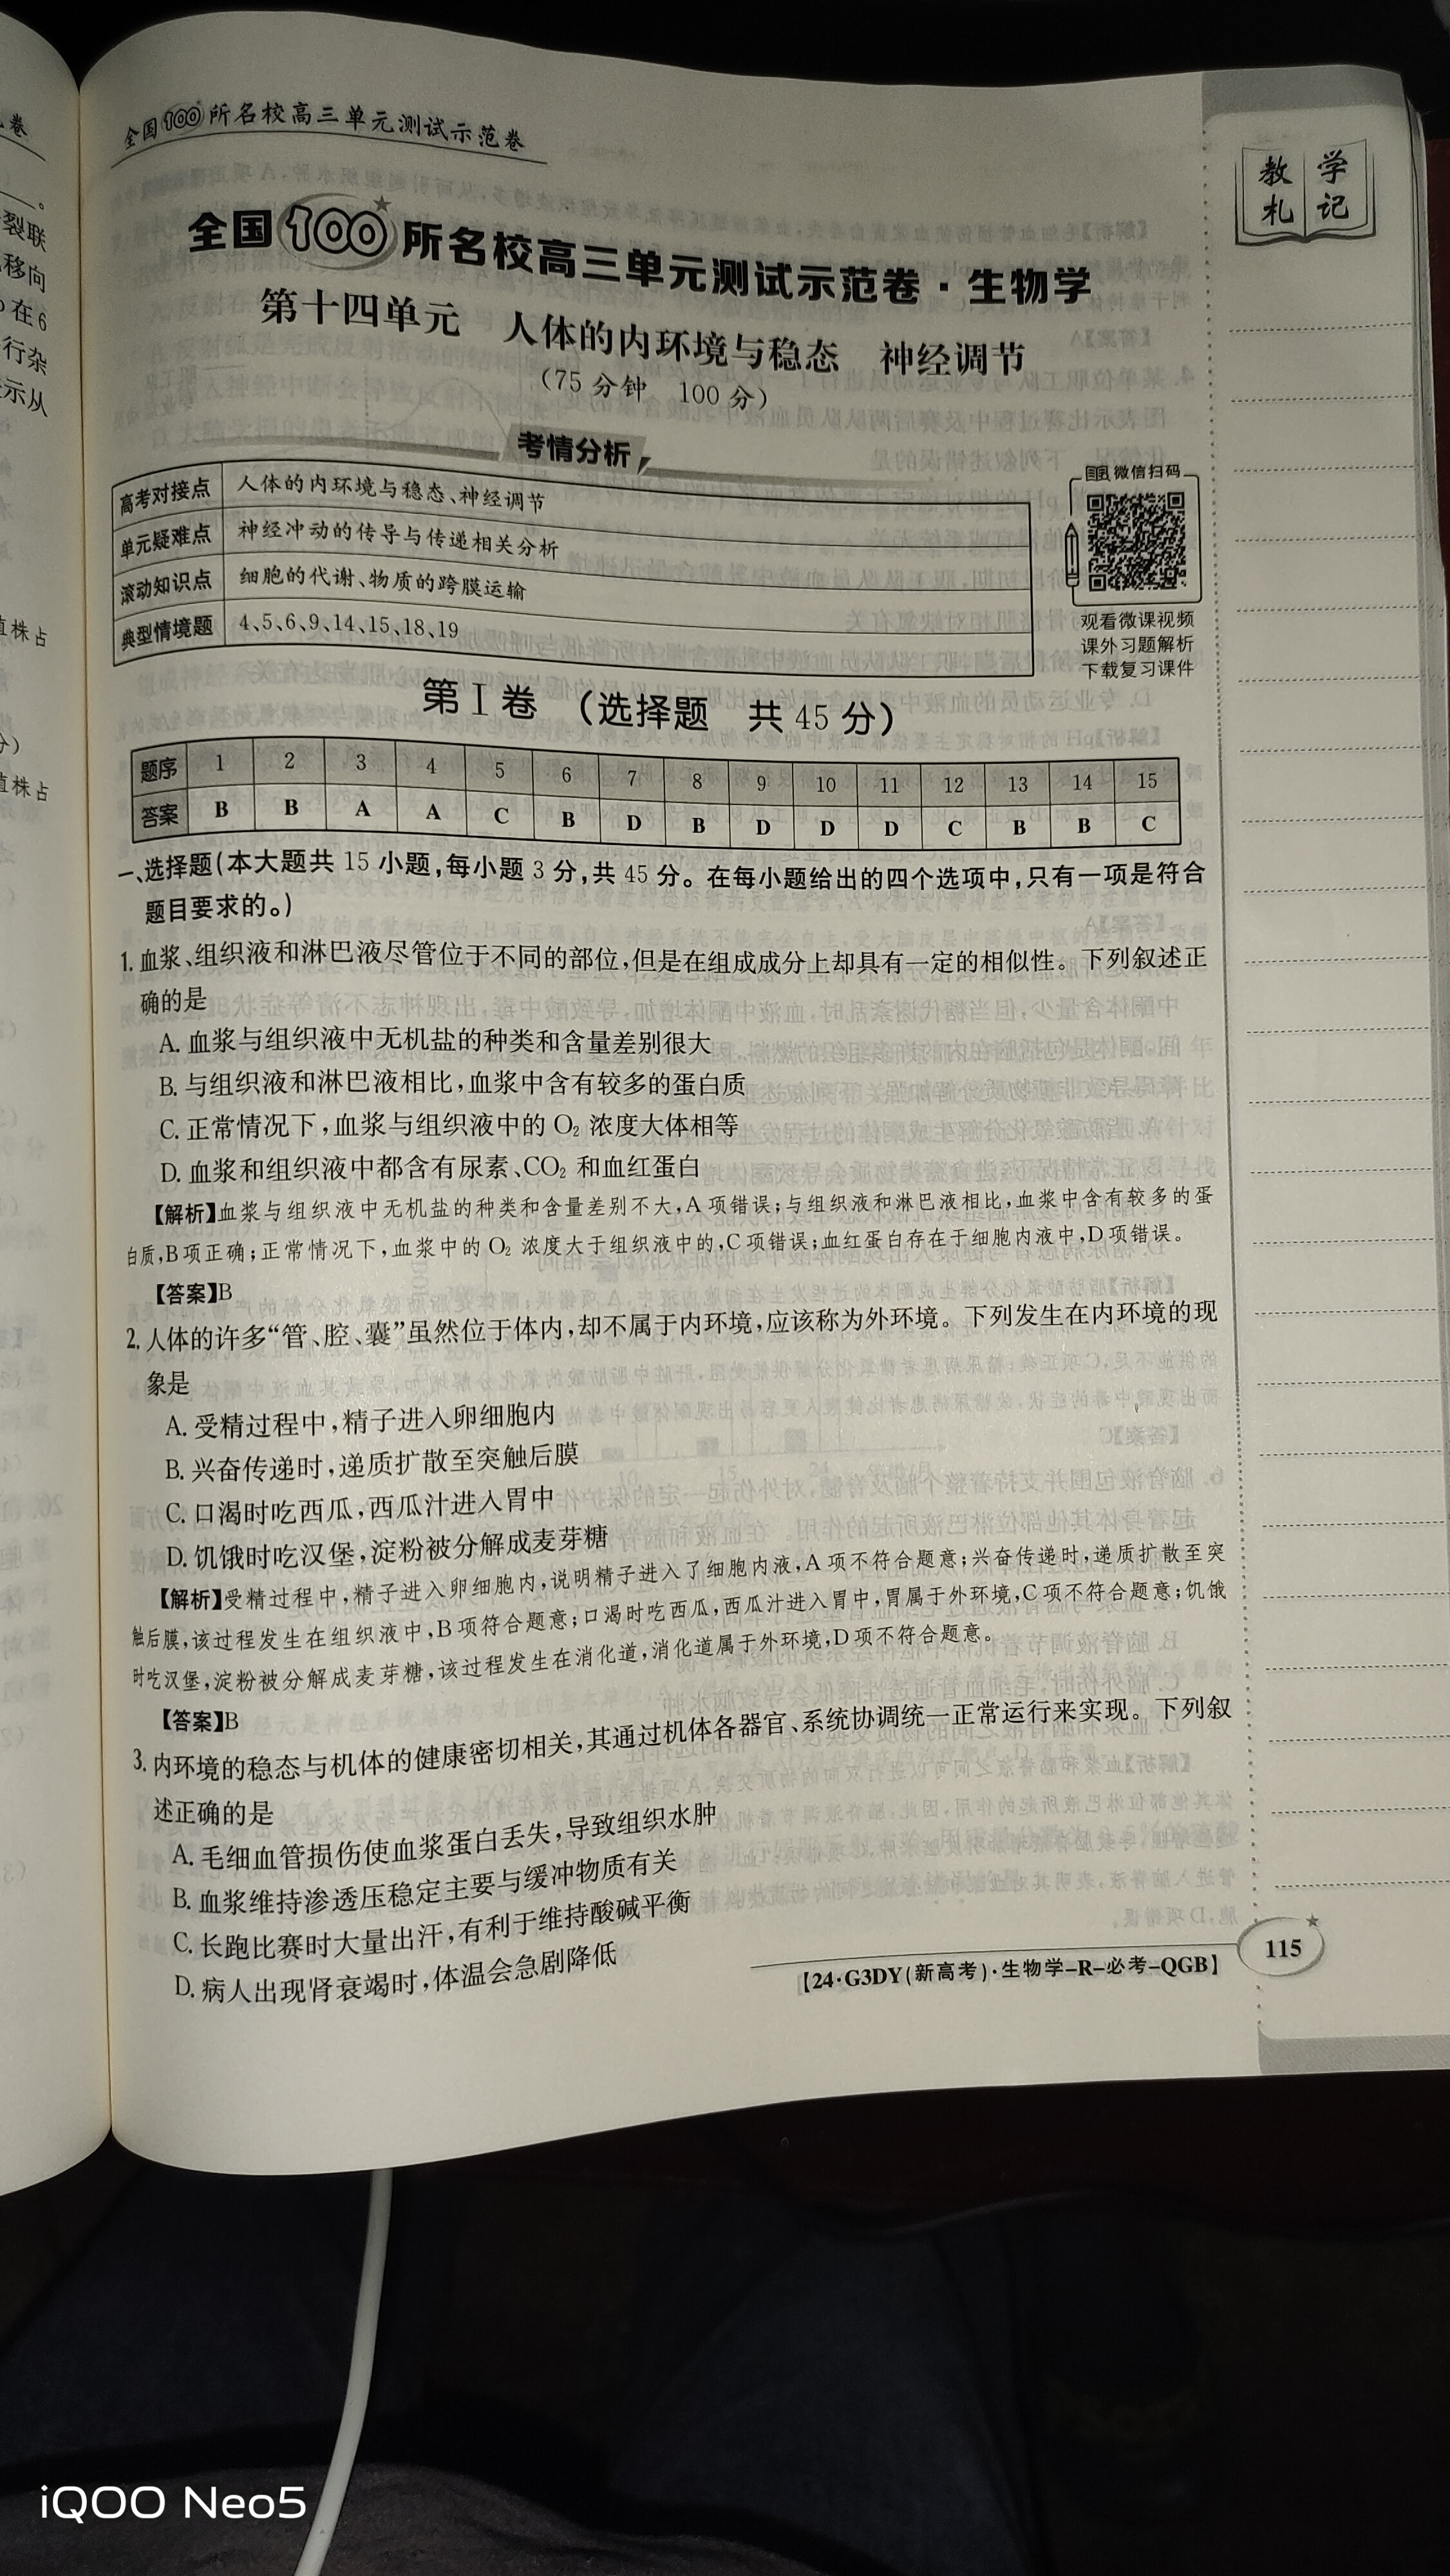 卷
。
裂联
移向
在6
行杂
示从
植株占
分)
植株占
全国100所名校高三单元测试示范卷
教学
札记
全国100所名校高三单元测试示范卷·生物学
第十四单元 人体的内环境与稳态 神经调节
(75分钟 100分)
考情分析
高考对接点 人体的内环境与稳态、神经调节
单元疑难点 神经冲动的传导与传递相关分析
滚动知识点 细胞的代谢、物质的跨膜运输
典型情境题 4、5、6、9、14、15、18、19
微信扫码
观看微课视频
课外习题解析
下载复习课件
第Ⅰ卷 (选择题 共45分)
题序 1 2 3 4 5 6 7 8 9 10 11 12 13 14 15
答案 B B A A C B D B D D D C B B C
一、选择题(本大题共15小题,每小题3分,共45分。在每小题给出的四个选项中,只有一项是符合
题目要求的。)
1. 血浆、组织液和淋巴液尽管位于不同的部位,但是在组成成分上却具有一定的相似性。下列叙述正
确的是
A. 血浆与组织液中无机盐的种类和含量差别很大
B. 与组织液和淋巴液相比,血浆中含有较多的蛋白质
C. 正常情况下,血浆与组织液中的O₂浓度大体相等
D. 血浆和组织液中都含有尿素、CO₂和血红蛋白
【解析】血浆与组织液中无机盐的种类和含量差别不大,A项错误;与组织液和淋巴液相比,血浆中含有较多的蛋
白质,B项正确;正常情况下,血浆中的O₂浓度大于组织液中的,C项错误;血红蛋白存在于细胞内液中,D项错误。
【答案】B
2. 人体的许多“管、腔、囊”虽然位于体内,却不属于内环境,应该称为外环境。下列发生在内环境的现
象是
A. 受精过程中,精子进入卵细胞内
B. 兴奋传递时,递质扩散至突触后膜
C. 口渴时吃西瓜,西瓜汁进入胃中
D. 饥饿时吃汉堡,淀粉被分解成麦芽糖
【解析】受精过程中,精子进入卵细胞内,说明精子进入了细胞内液,A项不符合题意;兴奋传递时,递质扩散至突
触后膜,该过程发生在组织液中,B项符合题意;口渴时吃西瓜,西瓜汁进入胃中,胃属于外环境,C项不符合题意;饥饿
时吃汉堡,淀粉被分解成麦芽糖,该过程发生在消化道,消化道属于外环境,D项不符合题意。
【答案】B
3. 内环境的稳态与机体的健康密切相关,其通过机体各器官、系统协调统一正常运行来实现。下列叙
述正确的是
A. 毛细血管损伤使血浆蛋白丢失,导致组织水肿
B. 血浆维持渗透压稳定主要与缓冲物质有关
C. 长跑比赛时大量出汗,有利于维持酸碱平衡
D. 病人出现肾衰竭时,体温会急剧降低
【24·G3DY(新高考)·生物学-R-必考-QGB】
115
iQOO Neo5